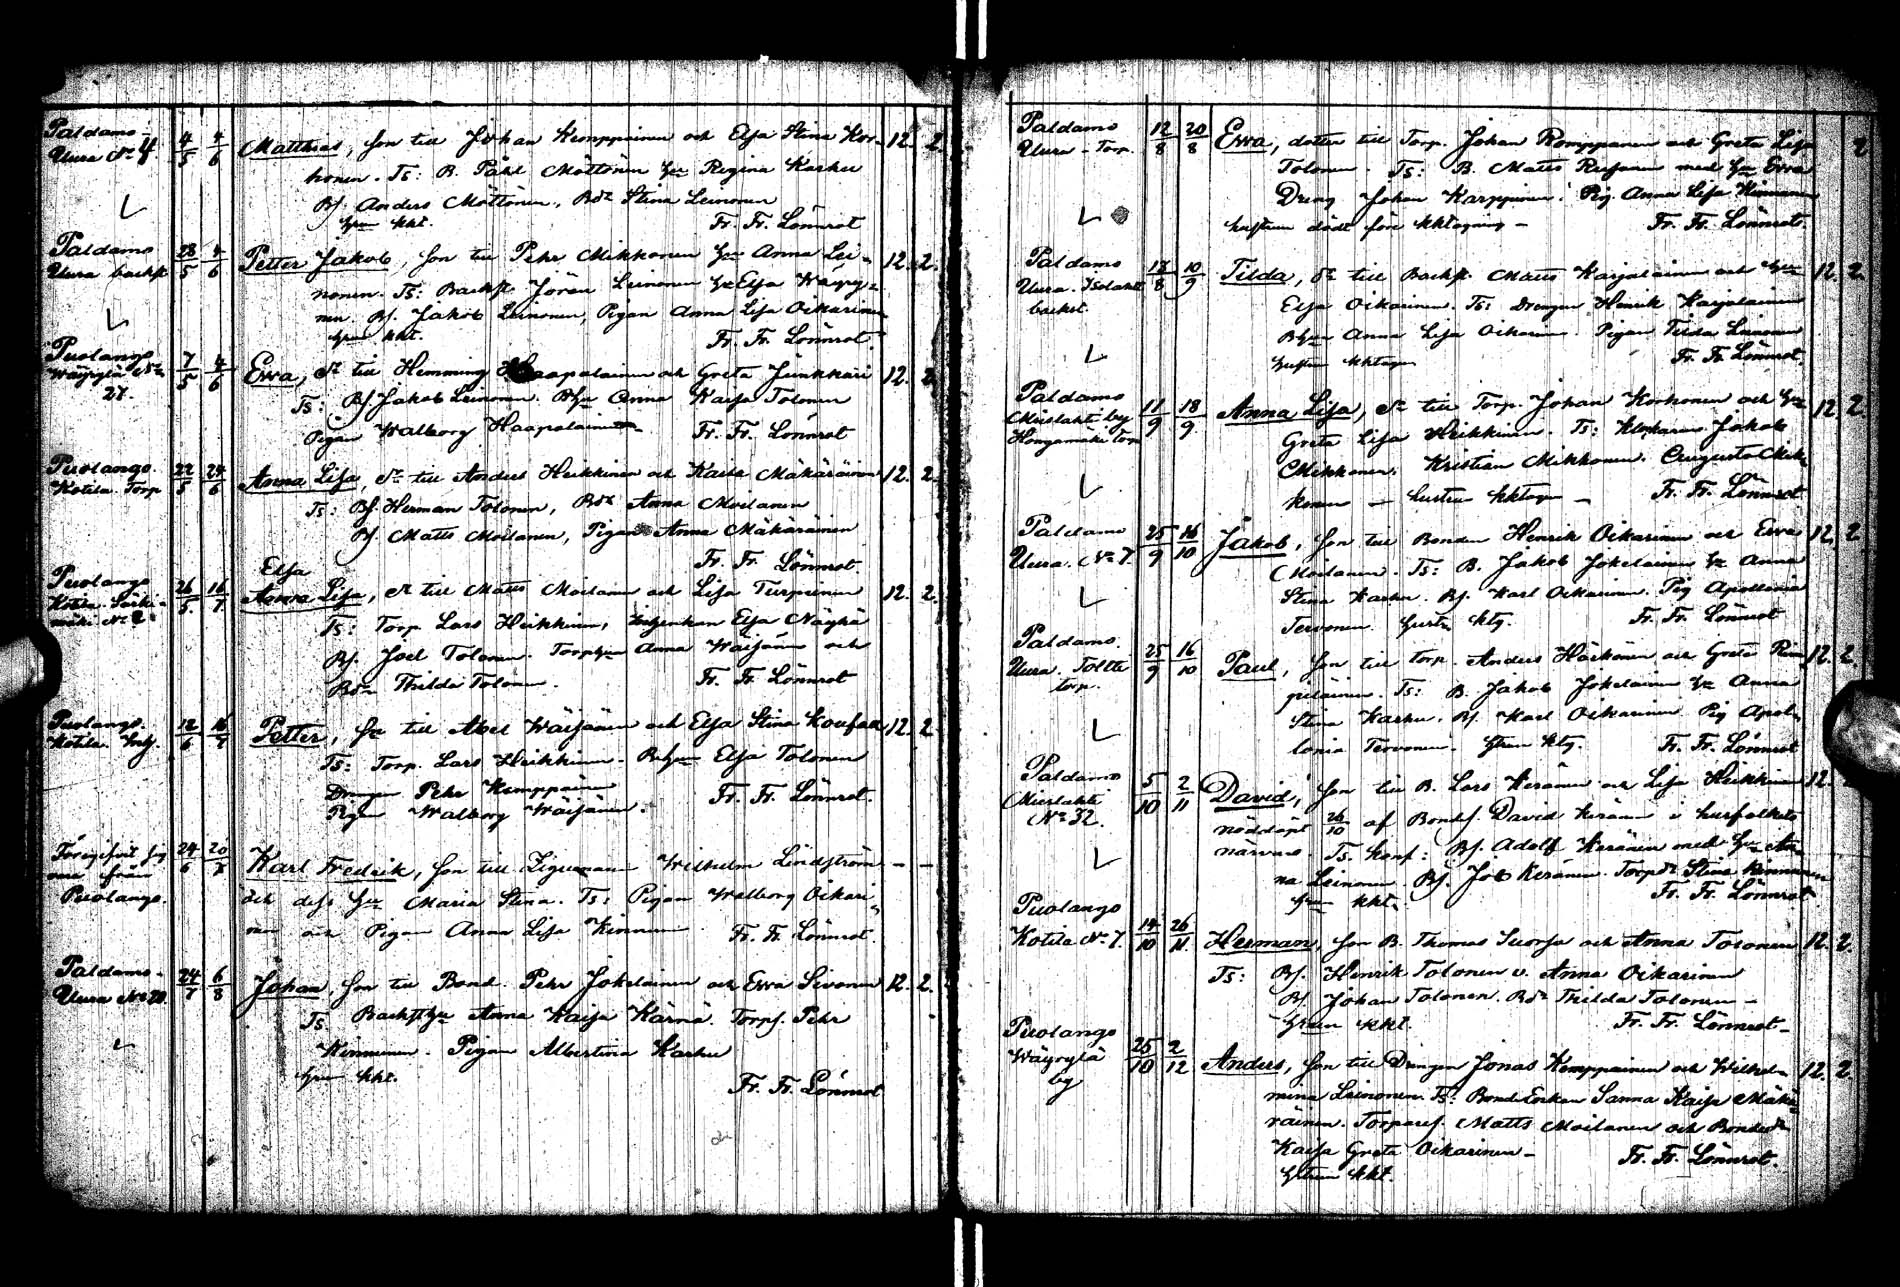 Paldamo
Uura No 4.
4/5 4/6 Matthias, son till Johan Kemppainen och Elsa Stina Kor- 12. 2.
honen. Ts: B. Påhl Möttönen hu Regina Karhu
Bs. Anders Möttönen, Bdr Stina Leinonen
hun kkt. Fr. Fr. Lönnrot
Paldamo
Uura backst
28/5 4/6 Petter Jakob, son till Pehr Mikkonen hu Anna Lei- 12. 2.
nonen. Ts: Backst. Jöran Leinonen hu Elsa Wäyry-
nen. Bs. Jakob Leinonen, Pigan Anna Lisa Oikarinen
hun kkt. Fr. Fr. Lönnrot.
Puolango
Wäyrylä No
27.
7/5 4/6 Ewa, dr till Hemming Haapalainen och Greta Junkkari 12. 2
Ts: Bs Jakob Leinonen. Bhu Anna Kaisa Tolonen
Pigan Walborg Haapalainen. Fr. Fr. Lönnrot
Puolango.
Kotila Torp
22/5 24/6 Anna Lisa, dr till Anders Heikkinen och Kaisa Mäkäräinen 12. 2.
Ts: Bs. Herman Tolonen, Bdr Anna Moilanen
Bs. Matts Moilanen, Pigan Anna Mäkäräinen
Fr. Fr. Lönnrot.
Elsa
Puolango
Kotila. Särki-
mäki No 2
26/5 16/7 Anna Lisa, dr till Matts Moilanen och Lisa Turpeinen 12. 2.
Ts: Torp. Lars Heikkinen, Inhysenkan Elsa Näykä
Bs. Joel Tolonen. Torphu Anna Wäisänen och
Bdr Thilda Tolonen. Fr. Fr. Lönnrot
Puolango.
Kotila. Inh.
12/6 16/7 Petter, sn till Abel Wäisänen och Elsa Stina 12. 2.
Ts: Torp. Lars Heikkinen. Bhu Elsa Tolonen
Drengen Pehr Kemppainen
Pigan Walborg Wäisänen. Fr. Fr. Lönnrot.
från
Puolango.
24/6 20/7 Karl Fredrik, son till Wilhelm Lindström – –
och dess hu Maria Stina. Ts: Pigan Walborg Oikari-
nen och Pigan Anna Lisa Kinnunen Fr. Fr. Lönnrot.
Paldamo.
Uura No 20.
24/7 6/8 Johan, son till Bond. Pehr Jokelainen och Ewa Sivonen 12. 2.
Ts Backsthu Anna Kaisa Kärnä. Torps. Pehr
Kinnunen. Pigan Albertina Karhu
hun kkt.
Fr. Fr. Lönnrot
Paldamo
Uura – Torp.
12/8 20/8 Ewa, dotter till Torp. Johan Romppanen och Greta Lisa 2
Tolonen. Ts: B. Matts Rusanen med hu Ewa
Dreng Johan Karppinen. Pig. Anna Lisa Kinnunen
hustrun död före kktagning – Fr. Fr. Lönnrot.
Paldamo
Uura.
backst.
18/8 10/9 Tilda, dr till Backst. Matts Karjalainen och hu 12. 2.
Elsa Oikarinen. Ts: Drengen Henrik Karjalainen
Bhu Anna Lisa Oikarinen. Pigan Tilda Leinonen
hustrun kktagen Fr. Fr. Lönnrot.
Paldamo
Mieslahti by
Hongamäki Torp
11/9 18/9 Anna Lisa, dr till Torp. Johan Korhonen och hu 12. 2.
Greta Lisa Heikkinen. Ts: Klockaren Jakob
Mikkonen. Kristian Mikkonen. Augusta Mik-
konen – hustru kktagen – Fr. Fr. Lönnrot
Paldamo
Uura. No 7.
25/9 16/10 Jakob, son till Bonden Henrik Oikarinen och Ewa 12. 2.
Moilanen. Ts: B. Jakob Jokelainen hu Anna
Stina Karhu. Bs. Karl Oikarinen. Pig Apollonia
Tervonen. hustr ktg. Fr. Fr. Lönnrot
Paldamo.
Uura.
torp.
25/9 16/10 Paul, son till Torp. Anders Härkönen och Greta Rim- 12. 2.
piläinen. Ts: B. Jakob Jokelainen hu Anna
Stina Karhu. Bs. Karl Oikarinen. Pig Apol-
lonia Tervonen. hstrun ktg. Fr. Fr. Lönnrot
Paldamo
Mieslahti
No 32.
5/10 2/11 David, son till B. Lars Keränen och Lisa Heikkinen 12.
nöddöpt 26/10 af Bonds. David Keränen i husfolkets
närvaro. Ts. konf: Bs. Adolf Keränen med hu An-
na Leinonen. Bs. Job Keränen. Torpdr Stina Kinnunen
hun kkt. Fr. Fr. Lönnrot
Puolango
Kotila No 7.
14/10 26/11. Herman, son B. Thomas Suorsa och Anna Tolonen 12. 2.
Ts: Bs. Henrik Tolonen o. Anna Oikarinen
Bs. Johan Tolonen. Bdr Thilda Tolonen –
hstrun kkt. Fr. Fr. Lönnrot –
Puolango
Wäyrylä
by
25/10 2/12 Anders, son till Drengen Jonas Kemppainen och Wilhel- 12. 2.
mina Leinonen. Ts: Bond Enkan Sanna Kaisa Mäkä-
räinen. Torpares. Matts Moilanen och Bondedr
Kaisa Greta Oikarinen – Fr. Fr. Lönnrot.
hstrun kkt.